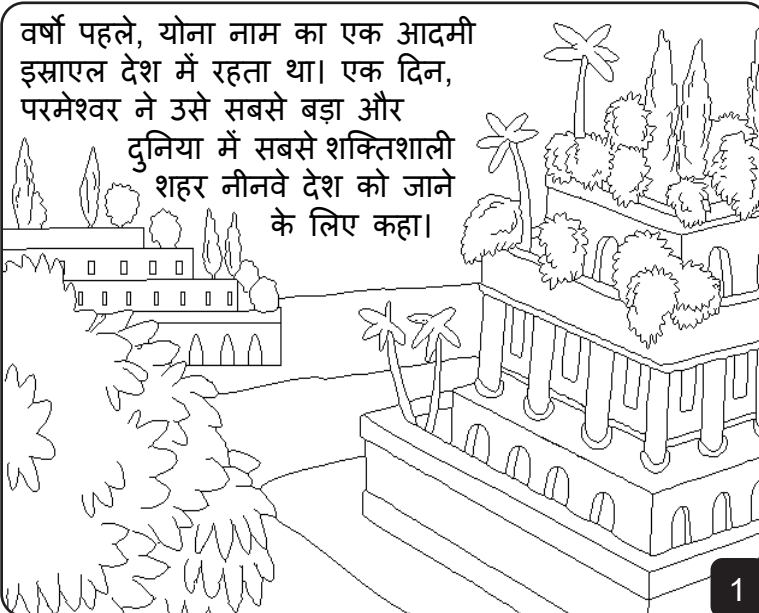 वर्षो पहले, योना नाम का एक आदमी
इस्राएल देश में रहता था। एक दिन,
परमेश्वर ने उसे सबसे बड़ा और
दुनिया में सबसे शक्तिशाली
शहर नीनवे देश को जाने
के लिए कहा।
1